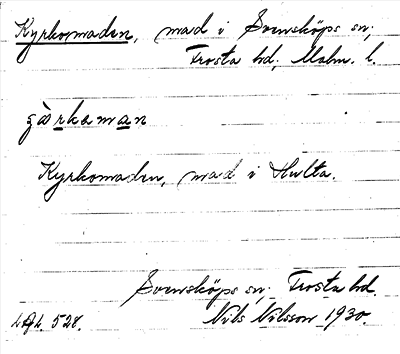 Kyrkomaden, mad i Svensköps sn,
Frosta hd, Malm. l.
Kyrkomaden, mad i Hulta.
Svensköps sn. Frosta hd.
528. Nils Nilsson 1930.